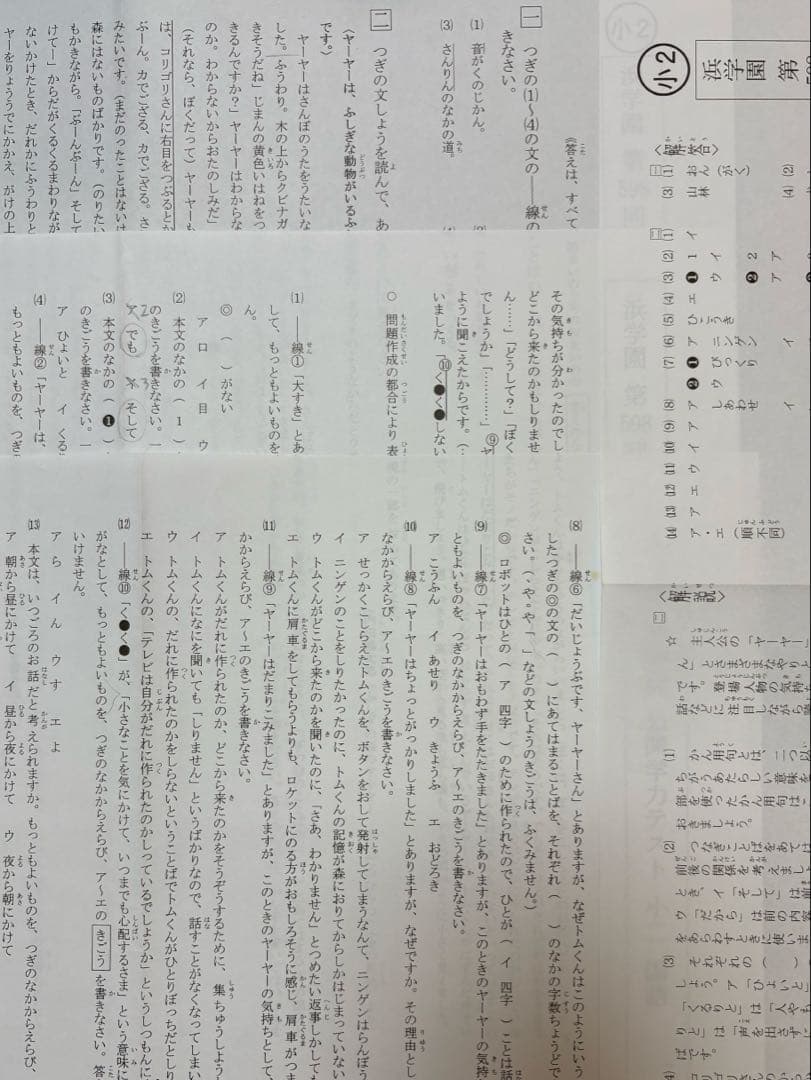 一 つぎの⑴～⑷の文の――線の
きなさい。
《答えは、すべて
⑴ 音がくのじかん。
⑶ さんりんのなかの道。
二 つぎの文しょうを読んで、あ
〈ヤーヤーは、ふしぎな動物がいるふ
です。〉
ヤーヤーはさんぽのうたをうたいな
した。ふうわり。木の上からクビナガ
きそうだね」じまんの黄色いはねをつ
きるんですか？」ヤーヤーはわからな
のか。わからないからおたのしみだ」
（それなら、ぼくだって）ヤーヤーも
は、コリゴリさんに右目をつぶるとか
ぶーん。カでござる、カでござる。さ
みたいです。（まだのったことはないけ
森にはないものばかりです。（のりたい
もかきながら。「ぶーんぶーん」そして
けてー」からだがくるくるまわりなが
ないかけたとき、だれかにふうわりと
ヤーをりょううでにかかえ、がけの上
その気持ちが分かったのでし
どこから来たのかもしりませ
ん……」「どうして？」「ぼく
でしょうか」「…………」⑨ヤ
ように聞こえたからです。（…
いました。「⑩く●く●しない
○ 問題作成の都合により表
⑴ ――線①「大すき」とあ
して、もっともよいものを
ん。
◎ （ ）がない
ア 口 イ 目 ウ
⑵ 本文のなかの（ １ ）
のきごうを書きなさい。一
ア でも イ そして
⑶ 本文のなかの（ ❶ ）
のきごうを書きなさい。一
ア ひょいと イ くる
⑷ ――線②「ヤーヤーは、
もっともよいものを、つぎ
⑻ ――線⑥「だいじょうぶです、ヤーヤーさん」とありますが、なぜトムくんはこのようにいう
したつぎの◎の文の（ ）にあてはまることばを、それぞれ（ ）のなかの字数ちょうどで
さい。（、や。や「 」などの文しょうのきごうは、ふくみません。）
◎ ロボットはひとの（ ア 四字 ）のために作られたので、ひとが（ イ 四字 ）ことは話
⑼ ――線⑦「ヤーヤーはおもわず手をたたきました」とありますが、このときのヤーヤーの気持
ともよいものを、つぎのなかからえらび、ア～エのきごうを書きなさい。
ア こうふん イ あせり ウ きょうふ エ おどろき
⑽ ――線⑧「ヤーヤーはちょっとがっかりしました」とありますが、なぜですか。その理由とし
なかからえらび、ア～エのきごうを書きなさい。
ア せっかくこしらえたトムくんを、ボタンをおして発射してしまうなんて、ニンゲンはらんぼう
イ ニンゲンのことをしりたかったのに、トムくんの記憶が森におりてからしかはじまっていない
ウ トムくんがどこから来たのかを聞いたのに、「さあ、わかりません」とつめたい返事しかしても
エ トムくんに肩車をしてもらうよりも、ロケットにのる方がおもしろそうに感じ、肩車がつま
⑾ ――線⑨「ヤーヤーはだまりこみました」とありますが、このときのヤーヤーの気持ちとして、
かからえらび、ア～エのきごうを書きなさい。
ア トムくんがだれに作られたのか、どこから来たのかをそうぞうするために、集ちゅうしよう
イ トムくんになにを聞いても「しりません」というばかりなので、話すことがなくなってしまい
ウ トムくんの、だれに作られたのかをしらないということばでトムくんがひとりぼっちだとしり
エ トムくんの、「テレビは自分がだれに作られたのかしっているでしょうか」というしつもんに
⑿ ――線⑩「く●く●」が、「小さなことを気にかけて、いつまでも心配するさま」という意味に
がなとして、もっともよいものを、つぎのなかからえらび、ア～エのきごうを書きなさい。答
いけません。
ア ら イ ん ウ す エ よ
⒀ 本文は、いつごろのお話だと考えられますか。もっともよいものを、つぎのなかからえらび、
ア 朝から昼にかけて イ 昼から夜にかけて ウ 夜から朝にかけて
小2
浜学園 第
〈解答〉
一 ⑴ おん（がく） ⑵
⑶ 山林 ⑷
二 ⑴ イ
⑵ 1 イ 2 ア
⑶ ❶ ウ ❷ ア
⑷ エ
⑸ ひこうき
⑹ ア ニンゲン イ
⑺ ❶ びっくり
❷ ウ
⑻ ア しあわせ イ
⑼ ア
⑽ イ
⑾ ウ
⑿ エ
⒀ ア
⒁ ア・エ（順不同）
〈解説〉
二
☆ 主人公の「ヤーヤー」
ん」とさまざまなやりと
です。登場人物の気持
話などに注目しながら読
⑴ かん用句とは、二つ以
ちがうあたらしい意味を
部を使ったかん用句は、
おきましょう。
⑵ つなぎことばをあては
前後の関係を考えまし
とき、イ「そして」は前
ウ「だから」は前の内容
をあらわすときに使いま
⑶ それぞれの（ ）
しょう。ア「ひょいと」
「くるりと」は「人やも
りと」は「声を出さずに
ばです。